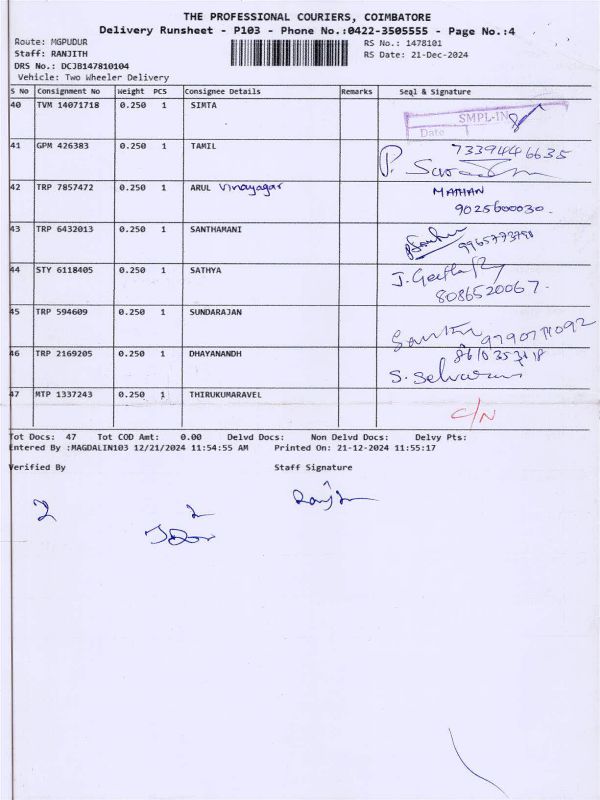 THE PROFESSIONAL COURIERS, COIMBATORE
Delivery Runsheet - P103 - Phone No.:0422-3505555 - Page No.:4
Route: MGPUDUR RS No.: 1478101
Staff: RANJITH RS Date: 21-Dec-2024
DRS No.: DCJB147810104
Vehicle: Two Wheeler Delivery
S No Consignment No Weight PCS Consignee Details Remarks Seal & Signature
40 TVM 14071718 0.250 1 SIMTA
SMPL-IN
Date
41 GPM 426383 0.250 1 TAMIL 7339446635
P.
42 TRP 7857472 0.250 1 ARUL Vinayagar MATHAN
9025600030.
43 TRP 6432013 0.250 1 SANTHAMANI
44 STY 6118405 0.250 1 SATHYA J. Geetha
8086520067.
45 TRP 594609 0.250 1 SUNDARAJAN
46 TRP 2169205 0.250 1 DHAYANANDH
47 MTP 1337243 0.250 1 THIRUKUMARAVEL
C/N
Tot Docs: 47 Tot COD Amt: 0.00 Delvd Docs: Non Delvd Docs: Delvy Pts:
Entered By :MAGDALIN103 12/21/2024 11:54:55 AM Printed On: 21-12-2024 11:55:17
Verified By Staff Signature